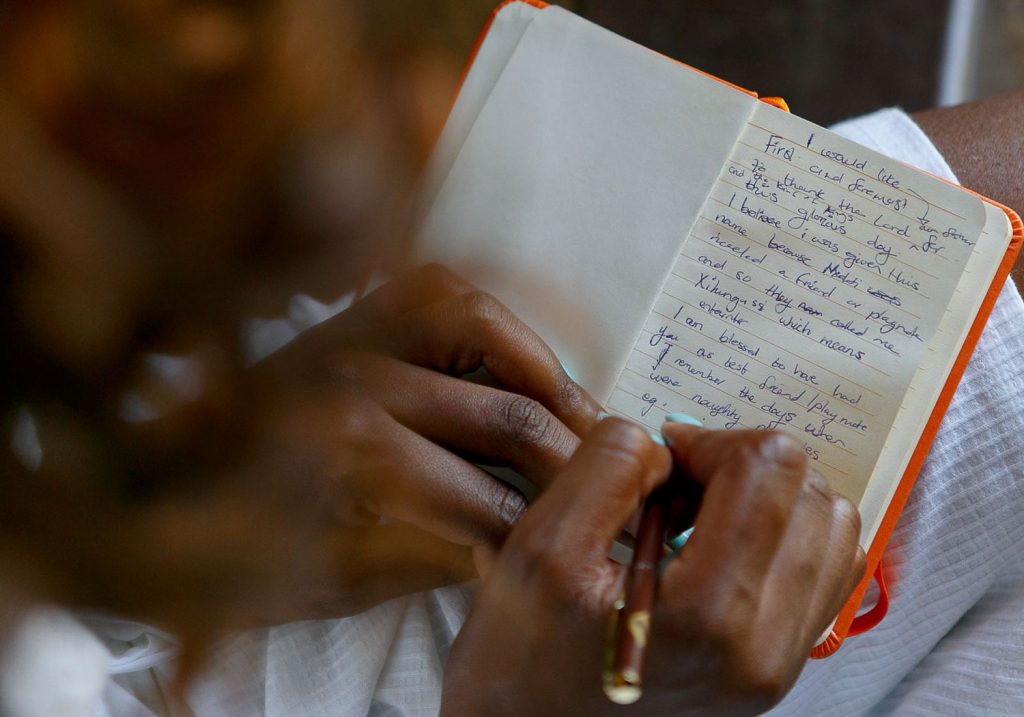 I would like
First and foremost
To thank the Lord for
and the
this glorious day
I believe i was given this
name because Nkddi
needed a friend or playmate
and so they called me
Xilungasi which means
entainter
I am blessed to have had
you as best friend/playmate
I remember the days when
were naughty
eg.